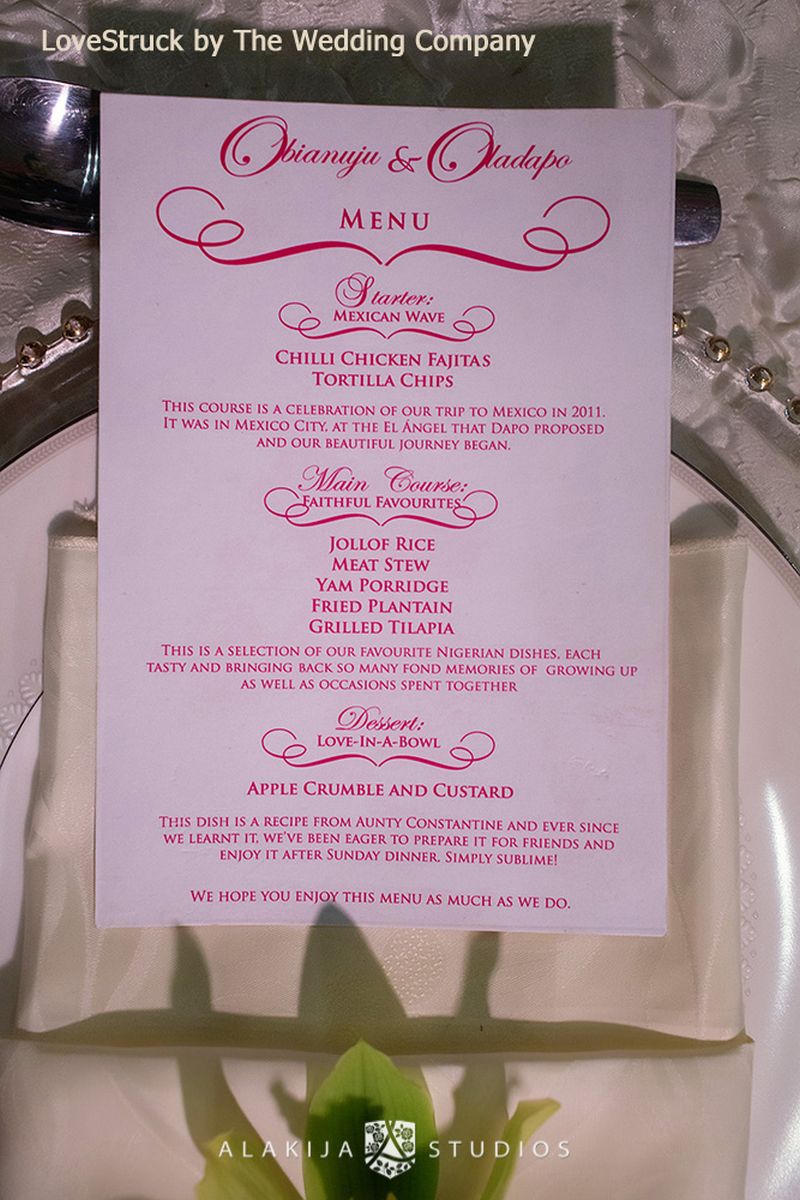 LoveStruck by The Wedding Company
Obianuju & Oladapo
MENU
Starter:
MEXICAN WAVE
CHILLI CHICKEN FAJITAS
TORTILLA CHIPS
THIS COURSE IS A CELEBRATION OF OUR TRIP TO MEXICO IN 2011.
IT WAS IN MEXICO CITY, AT THE EL ÁNGEL THAT DAPO PROPOSED
AND OUR BEAUTIFUL JOURNEY BEGAN.
Main Course:
FAITHFUL FAVOURITES
JOLLOF RICE
MEAT STEW
YAM PORRIDGE
FRIED PLANTAIN
GRILLED TILAPIA
THIS IS A SELECTION OF OUR FAVOURITE NIGERIAN DISHES, EACH
TASTY AND BRINGING BACK SO MANY FOND MEMORIES OF GROWING UP
AS WELL AS OCCASIONS SPENT TOGETHER
Dessert:
LOVE-IN-A-BOWL
APPLE CRUMBLE AND CUSTARD
THIS DISH IS A RECIPE FROM AUNTY CONSTANTINE AND EVER SINCE
WE LEARNT IT, WE'VE BEEN EAGER TO PREPARE IT FOR FRIENDS AND
ENJOY IT AFTER SUNDAY DINNER. SIMPLY SUBLIME!
WE HOPE YOU ENJOY THIS MENU AS MUCH AS WE DO.
ALAKIJA STUDIOS